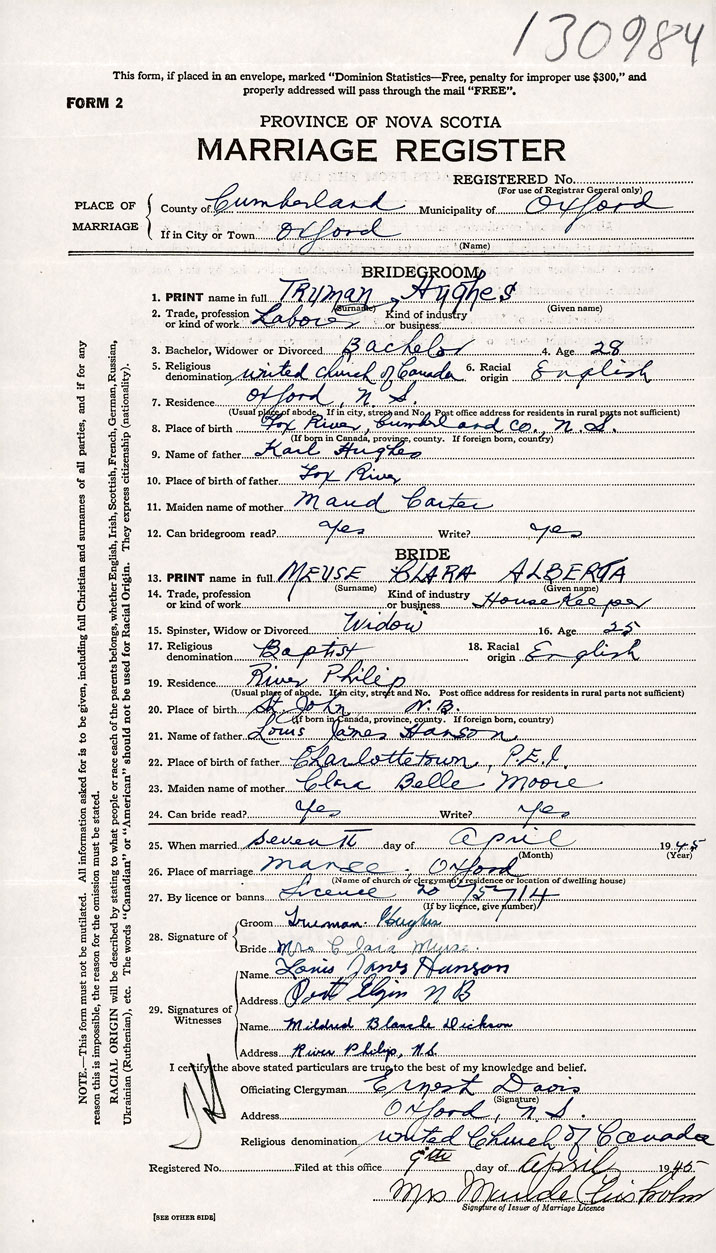 130984
This form, if placed in an envelope, marked "Dominion Statistics—Free, penalty for improper use $300," and
properly addressed will pass through the mail "FREE".
FORM 2
PROVINCE OF NOVA SCOTIA
MARRIAGE REGISTER
REGISTERED No.
(For use of Registrar General only)
PLACE OF MARRIAGE
County of Cumberland Municipality of Oxford
If in City or Town Oxford
(Name)
BRIDEGROOM
1. PRINT name in full TRUMAN HUGHES
(Surname) (Given name)
2. Trade, profession or kind of work Laborer Kind of industry or business
3. Bachelor, Widower or Divorced Bachelor 4. Age 28
5. Religious denomination united church of Canada 6. Racial origin English
7. Residence Oxford, N.S.
(Usual place of abode. If in city, street and No. Post office address for residents in rural parts not sufficient)
8. Place of birth Fox River, Cumberland Co., N.S.
(If born in Canada, province, county. If foreign born, country)
9. Name of father Karl Hughes
10. Place of birth of father Fox River
11. Maiden name of mother Maud Carter
12. Can bridegroom read? yes Write? yes
BRIDE
13. PRINT name in full MEUSE CLARA ALBERTA
(Surname) (Given name)
14. Trade, profession or kind of work Kind of industry or business HouseKeeper
15. Spinster, Widow or Divorced Widow 16. Age 25
17. Religious denomination Baptist 18. Racial origin English
19. Residence River Philip
(Usual place of abode. If in city, street and No. Post office address for residents in rural parts not sufficient)
20. Place of birth St. John N.B.
(If born in Canada, province, county. If foreign born, country)
21. Name of father Louis James Hanson
22. Place of birth of father Charlottetown, P.E.I.
23. Maiden name of mother Clara Belle Moore
24. Can bride read? Yes Write? Yes
25. When married seventh day of April 1945
(Month) (Year)
26. Place of marriage manse, Oxford
(Name of church or clergyman's residence or location of dwelling house)
27. By licence or banns Licence no 75714
(If by licence, give number)
28. Signature of
Groom Trueman Hughes
Bride Mrs Clara Muse.
29. Signatures of Witnesses
Name Louis James Hanson
Address Port Elgin N B
Name Mildred Blanche Dickson
Address River Philip, N.S.
I certify the above stated particulars are true to the best of my knowledge and belief.
Officiating Clergyman Ernest Davis
(Signature)
Address Oxford, N.S.
Religious denomination united Church of Canada
Registered No. Filed at this office 9th day of April 1945
Mrs Maude Chisholm
Signature of Issuer of Marriage Licence
[SEE OTHER SIDE]
NOTE.—This form must not be mutilated. All information asked for is to be given, including full Christian and surnames of all parties, and if for any
reason this is impossible, the reason for the omission must be stated.
RACIAL ORIGIN will be described by stating to what people or race each of the parents belongs, whether English, Irish, Scottish, French, German, Russian,
Ukrainian (Ruthenian), etc. The words "Canadian" or "American" should not be used for Racial Origin. They express citizenship (nationality).